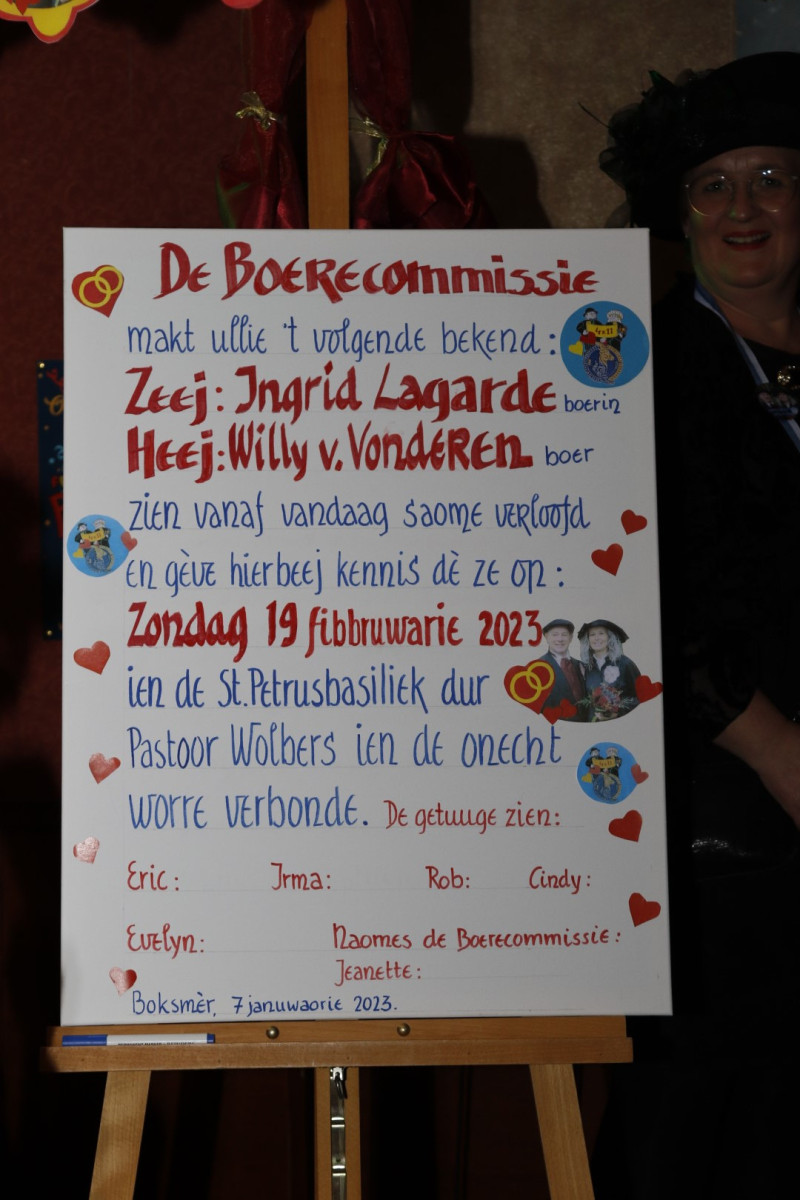 De Boerecommissie
makt ullie 't volgende bekend:
Zeej: Ingrid Lagarde boerin
Heej: Willy v. Vonderen boer
zien vanaf vandaag saome verloofd
en gève hierbeej kennis dè ze op:
Zondag 19 fibbruwarie 2023
ien de St. Petrusbasiliek dur
Pastoor Wolbers ien de onecht
worre verbonde. De getuuge zien:
Eric: Irma: Rob: Cindy:
Evelyn: Naomes de Boerecommissie:
Jeanette:
Boksmèr, 7 januwaorie 2023.
4x11
4x11
4x11